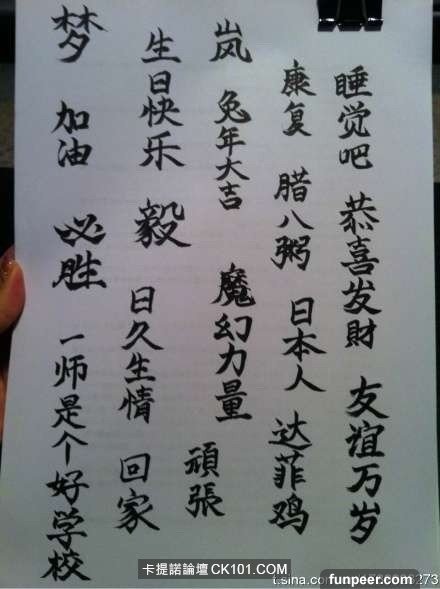 睡觉吧
恭喜发财
友谊万岁
康复
腊八粥
日本人
达菲鸡
岚
兔年大吉
魔幻力量
頑張
生日快乐
毅
日久生情
回家
梦
加油
必胜
一师是个好学校
卡提諾論壇 CK101.COM
t.sina.com
273
funpeer.com